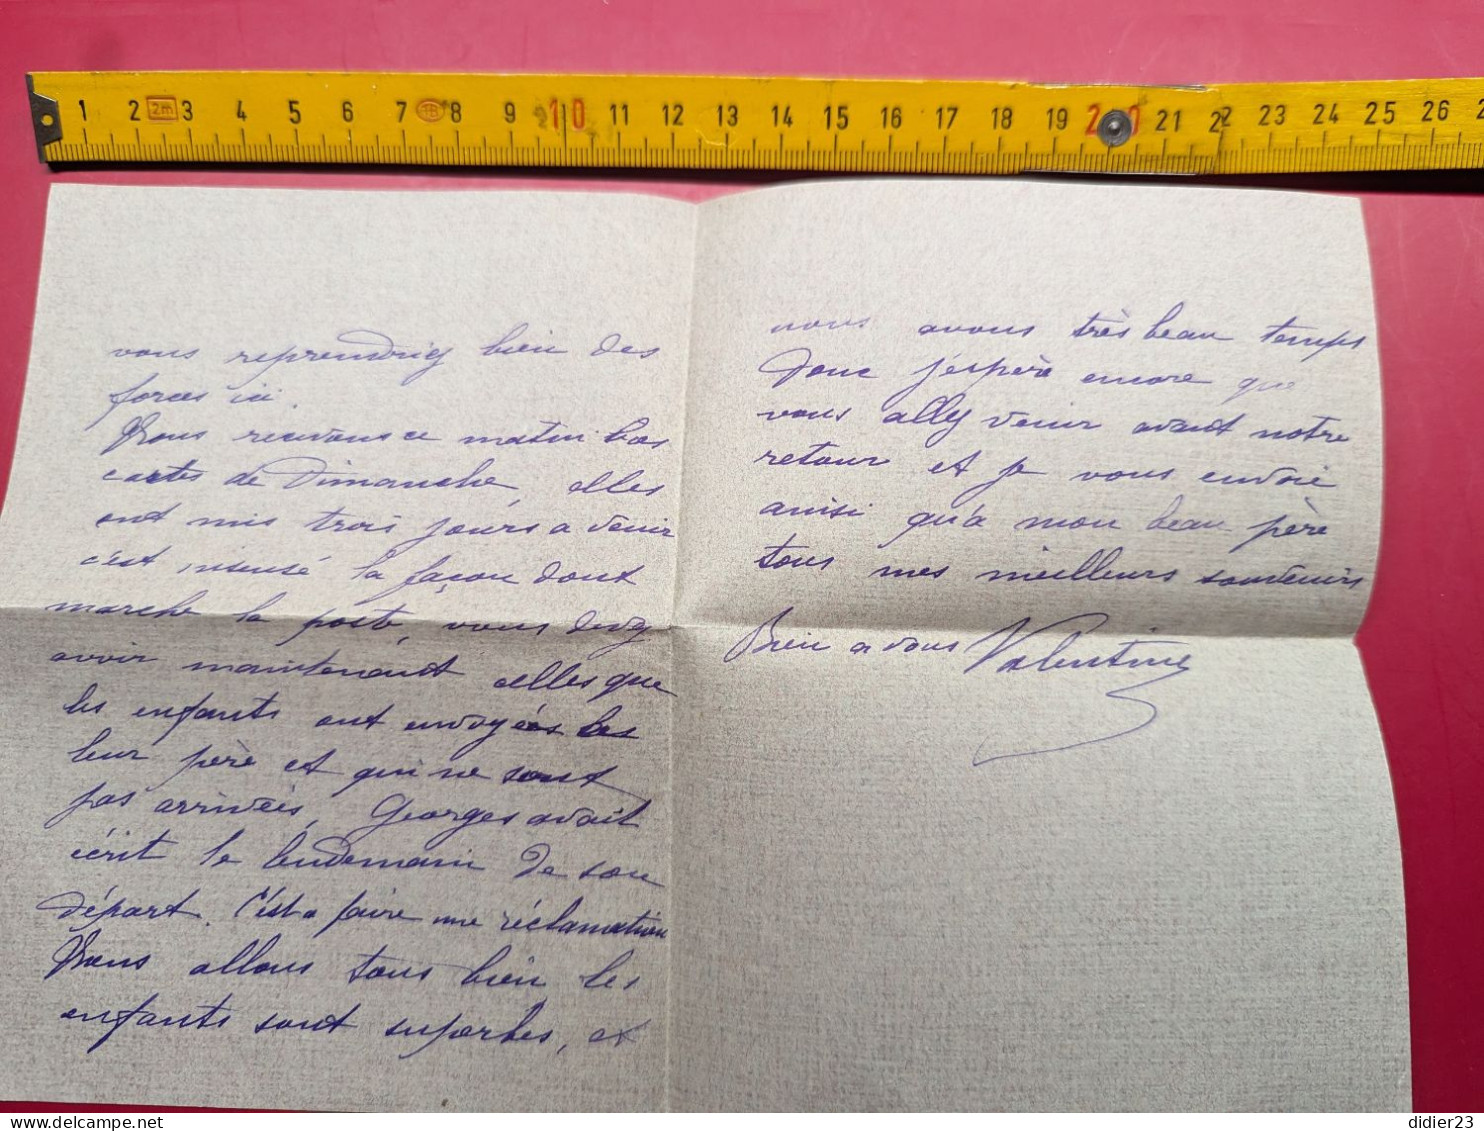 1 2 2m 3 4 5 6 7 8 9 10 11 12 13 14 15 16 17 18 19 20 21 22 23 24 25 26 2
vous reprendriez bien des
forces ici.
Nous recevons ce matin les
cartes de Dimanche, elles
ont mis trois jours a venir
c'est insensé la façon dont
marche la poste, vous devez
avoir maintenant celles que
les enfants ont envoyées
leur père et qui ne sont
pas arrivées, Georges avait
écrit le lendemain de son
départ. C'est a faire une réclamation
Nous allons tous bien les
enfants sont superbes, et
nous avons très beau temps
Donc j'espère encore que
vous allez venir avant notre
retour et je vous envoie
ainsi qu'à mon beau père
tous mes meilleurs souvenirs
Bien a vous Valentine
didier23